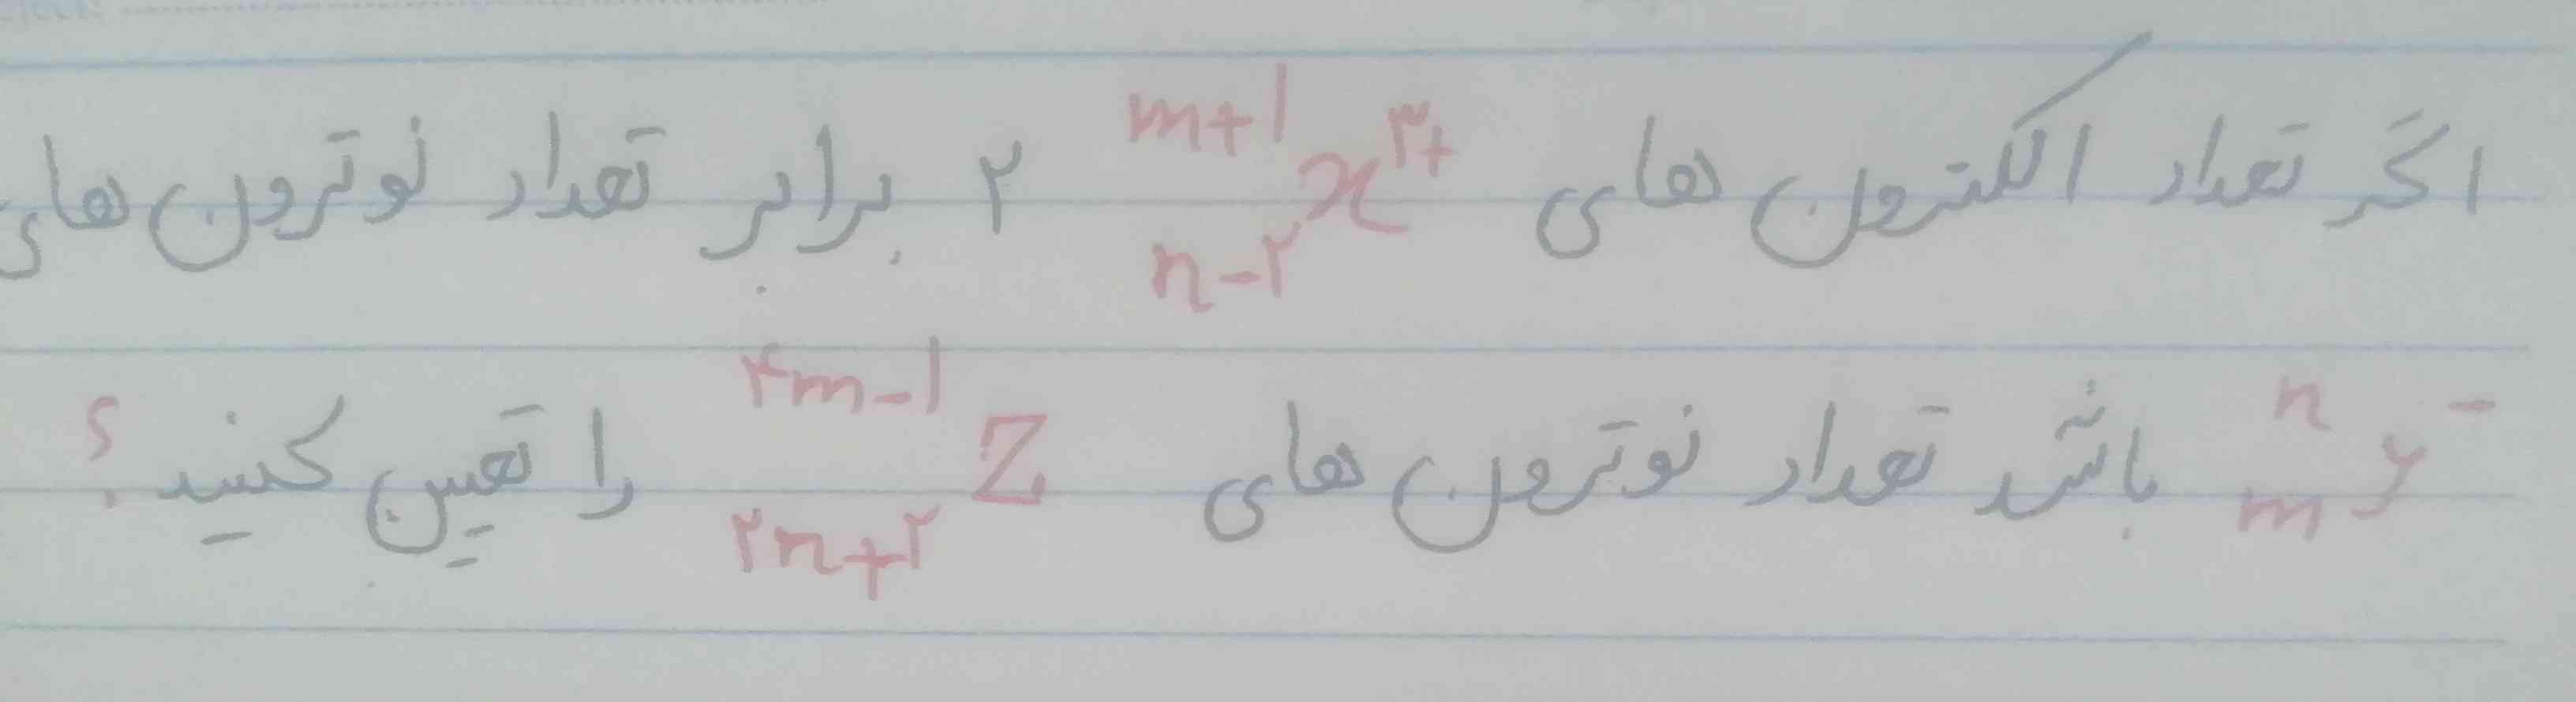 اگر تعداد الکترون های m+1 n-۲ x ۳+ ۲ برابر تعداد نوترون های
n m y - باشد تعداد نوترون های ۴m-1 ۲n+۲ Z را تعیین کنید ؟